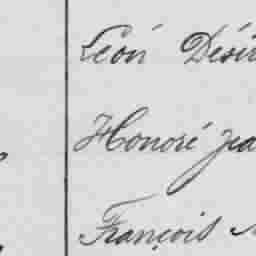 Léon Dési
Honoré Jea
François